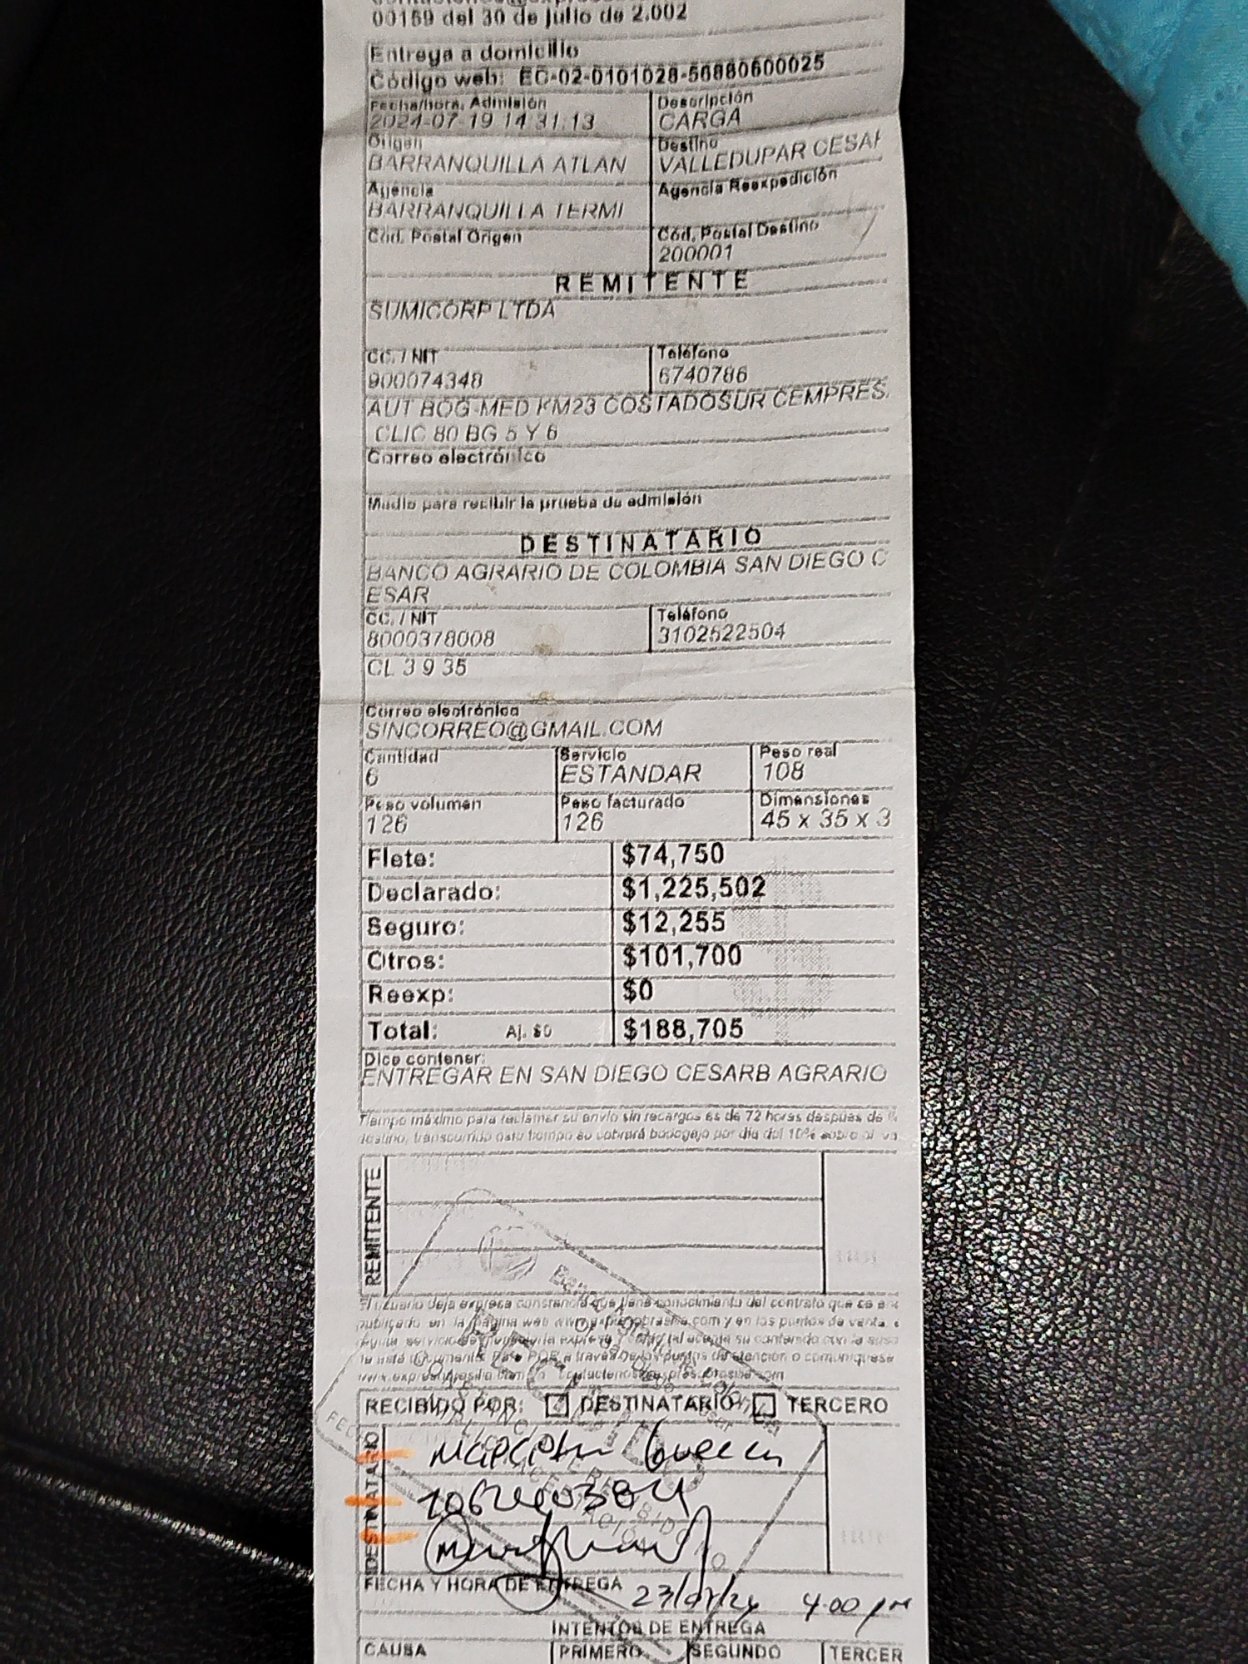 00159 del 30 de julio de 2.002
Entrega a domicilio
Código web: EC-02-0101028-56880600025
Fecha/hora, Admisión Descripción
2024-07-19 14:31:13 CARGA
Origen Destino
BARRANQUILLA ATLAN VALLEDUPAR CESAR
Agencia Agencia Reexpedición
BARRANQUILLA TERMI
Cód. Postal Origen Cód. Postal Destino
200001
REMITENTE
SUMICORP LTDA
CC. / NIT Teléfono
900074348 6740786
AUT BOG-MED KM23 COSTADOSUR CEMPRES.
CLIC 80 BG 5 Y 6
Correo electrónico
Medio para recibir la prueba de admisión
DESTINATARIO
BANCO AGRARIO DE COLOMBIA SAN DIEGO C
ESAR
CC. / NIT Teléfono
8000378008 3102522504
CL 3 9 35
Correo electrónico
SINCORREO@GMAIL.COM
Cantidad Servicio Peso real
6 ESTANDAR 108
Peso volumen Peso facturado Dimensiones
126 126 45 x 35 x 3
Flete: $74,750
Declarado: $1,225,502
Seguro: $12,255
Otros: $101,700
Reexp: $0
Total: Aj. $0 $188,705
Dice contener:
ENTREGAR EN SAN DIEGO CESARB AGRARIO
Tiempo máximo para reclamar su envío sin recargos es de 72 horas después de
destino, transcurrido este tiempo se cobrará bodegaje por día del 10% sobre el
REMITENTE
El usuario deja expresa constancia que tiene conocimiento del contrato que se
publicado en la página web www. y en los puntos de venta,
RECIBIDO POR: DESTINATARIO TERCERO
DESTINATARIO
FECHA Y HORA DE ENTREGA 23/07/24 4:00 pm
INTENTOS DE ENTREGA
CAUSA PRIMERO SEGUNDO TERCER